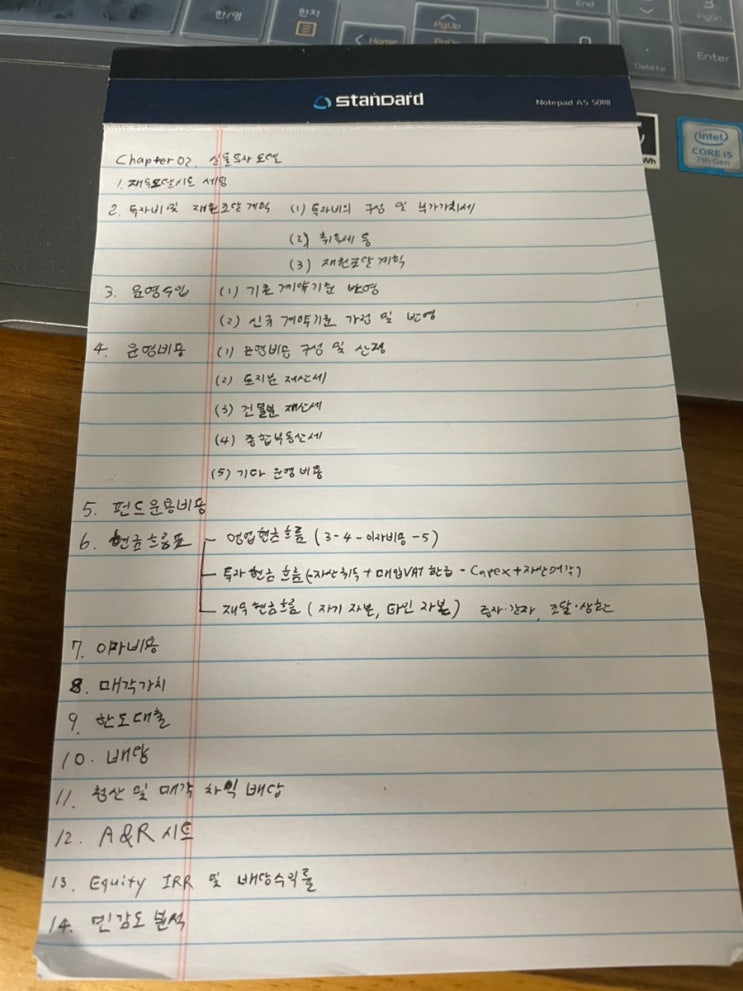 한/영
한자
Home
PgUp
PgDn
End
3
PgDn
Delete
Enter
standard
Notepad A5 50매
intel
CORE i5
7th Gen
Wh
Chapter 02. 실물투자 모델
1. 재무모델시트 세팅
2. 투자비 및 재원조달계획 (1) 투자비의 구성 및 부가가치세
(2) 취득세 등
(3) 재원조달계획
3. 운영수입 (1) 기존 계약기준 반영
(2) 신규 계약기준 가정 및 반영
4. 운영비용 (1) 운영비용 구성 및 산정
(2) 토지분 재산세
(3) 건물분 재산세
(4) 종합부동산세
(5) 기타 운영비용
5. 펀드운용비용
6. 현금흐름표 영업현금흐름 (3-4-이자비용-5)
투자현금흐름(-자산취득+매입VAT 환급-Capex+자산매각)
재무현금흐름 (자기 자본, 타인 자본) 증자·감자, 조달·상환
7. 이자비용
8. 매각가치
9. 한도대출
10. 배당
11. 청산 및 매각 차익 배당
12. A&R 시트
13. Equity IRR 및 배당수익률
14. 민감도 분석